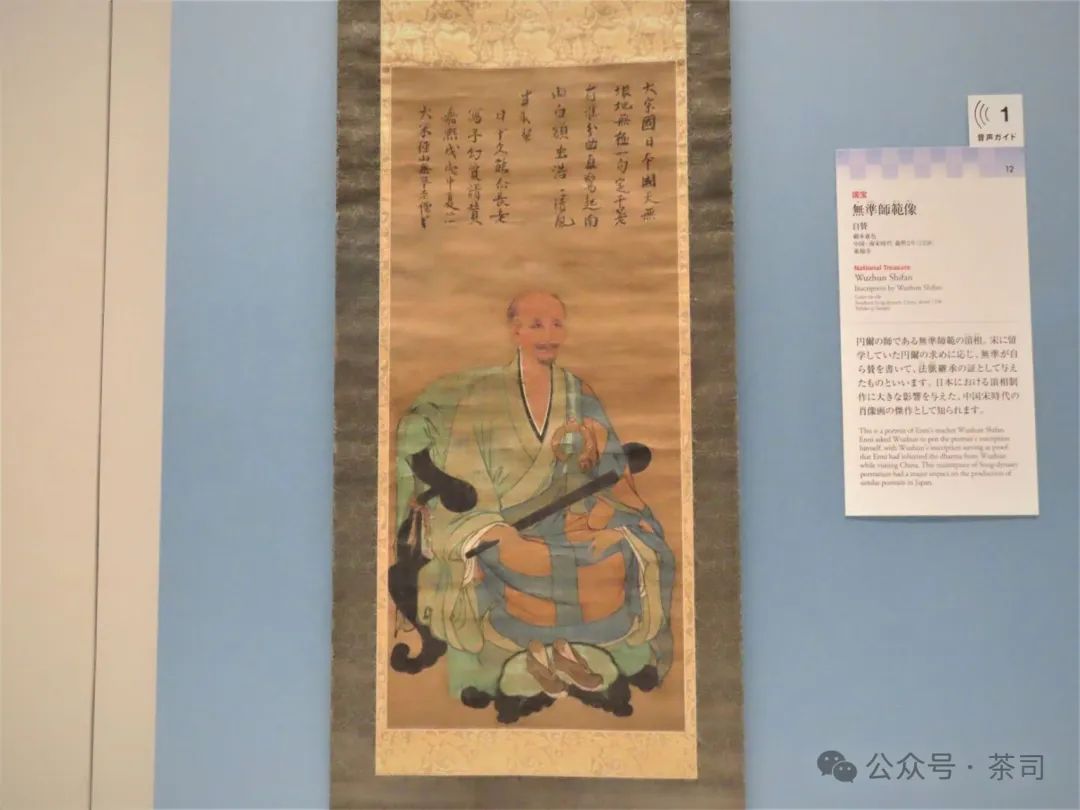 大宗國日本國天無
垠地無極一句定千差
有誰分曲直驚起南
山白額虫浩〻清風
生羽翼
日本久能爾長老
寫予幻質請贊
嘉熙戊戌中夏
大宋徑山無準老僧
1
音声ガイド
12
国宝
無準師範像
自賛
絹本著色
東福寺
National Treasure
Wuzhun Shifan
Inscription by Wuzhun Shifan
円爾の師である無準師範の頂相。宋に留
学していた円爾の求めに応じ、無準が自
ら賛を書いて、法脈継承の証として与え
たものといいます。日本における頂相制
作に大きな影響を与えた、中国宋時代の
肖像画の傑作として知られます。
This is a portrait of Enni's teacher Wuzhun Shifan.
Enni asked Wuzhun to pen the portrait's inscription
himself, with Wuzhun's inscription serving as proof
that Enni had inherited the dharma from Wuzhun
while visiting China. This masterpiece of Song-dynasty
portraiture had a major impact on the production of
similar portraits in Japan.
公众号·茶司